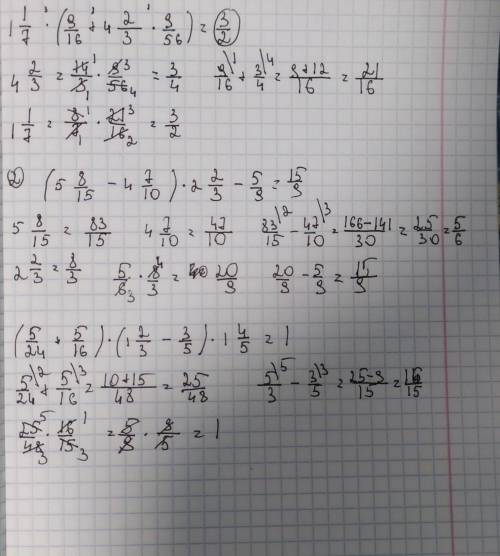 1 1/7 · (9/16 + 4 2/3 · 9/56) = 3/2
4 2/3 = 14/3 · 9/56 = 3/4   9/16 + 3/4 = 9+12/16 = 21/16
1 1/7 = 8/7 · 21/16 = 3/2
2 (5 8/15 - 4 7/10) · 2 2/3 - 5/9 = 15/9
5 8/15 = 83/15   4 7/10 = 47/10   83/15 - 47/10 = 166-141/30 = 25/30 = 5/6
2 2/3 = 8/3   5/6 · 8/3 = 20/9   20/9 - 5/9 = 15/9
(5/24 + 5/16) · (1 2/3 - 3/5) · 1 4/5 = 1
5/24 + 5/16 = 10+15/48 = 25/48   5/3 - 3/5 = 25-9/15 = 16/15
25/48 · 16/15 = 5/9 · 9/5 = 1